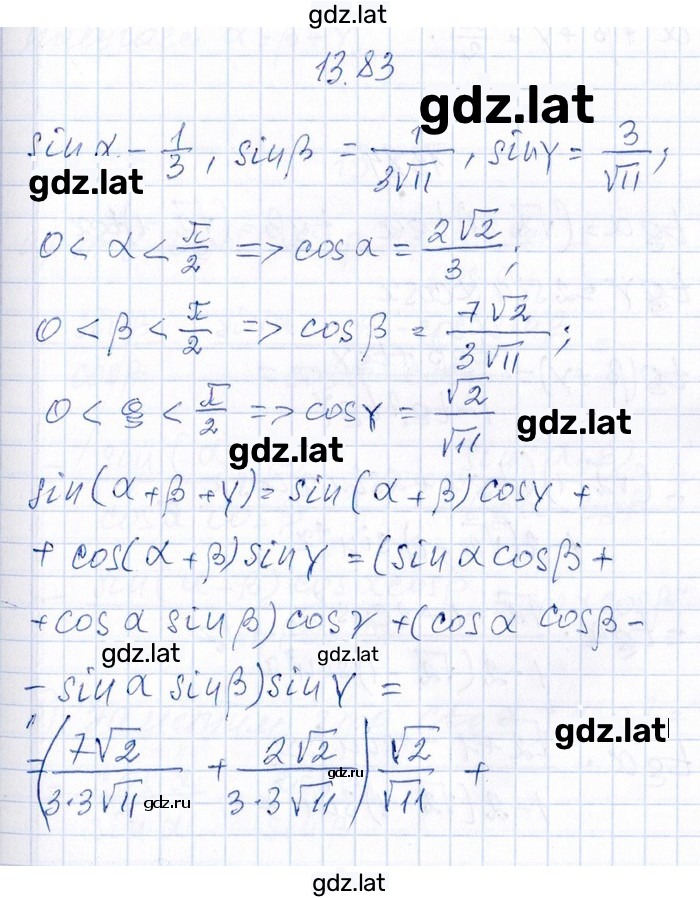 gdz.lat
13.83
gdz.lat
sin α - 1/3, sin β = 1/(3√11), sin γ = 3/√11;
gdz.lat
0 < α < π/2 => cos α = 2√2/3;
0 < β < π/2 => cos β = 7√2/(3√11);
0 < < π/2 => cos γ = √2/√11
gdz.lat
gdz.lat
sin(α+β+γ) = sin(α+β)cosγ +
+ cos(α+β)sinγ = (sin α cosβ +
+ cos α sin β) cos γ + (cos α cosβ -
gdz.lat gdz.lat
- sin α sin β) sin γ =
gdz.lat
= (7√2/(3·3√11) + 2√2/(3·3√11)) √2/√11 +
gdz.ru gdz.ru
gdz.lat